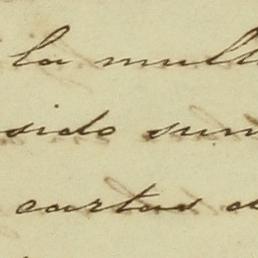 la mult
sido sum
cartas a